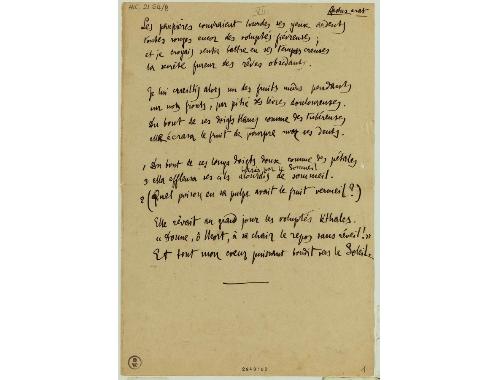 Les paupières couvraient lourdes ses yeux ardents
toutes rouges encor des voluptés fiévreuses ;
et je croyais sentir battre en ses tempes creuses
la secrète fureur des rêves obsédants.
Je lui cueillis alors un des fruits mûrs pendants
sur nos fronts, par pitié des lèvres douloureuses.
Du bout de ses doigts blancs comme des tubéreuses
elle écrasa le fruit de pourpre sur ses dents.
1 Du bout de ses longs doigts doux comme des pétales
3 elle effleura ses cils alourdis de sommeil.
par le sommeil
2 (Quel poison en sa pulpe avait le fruit vermeil ?)
Elle rêvait au grand jour les voluptés léthales.
« Donne, ô Mort, à sa chair le repos sans réveil ! »
Et tout mon cœur puissant bondit vers le Soleil.
2649102
1